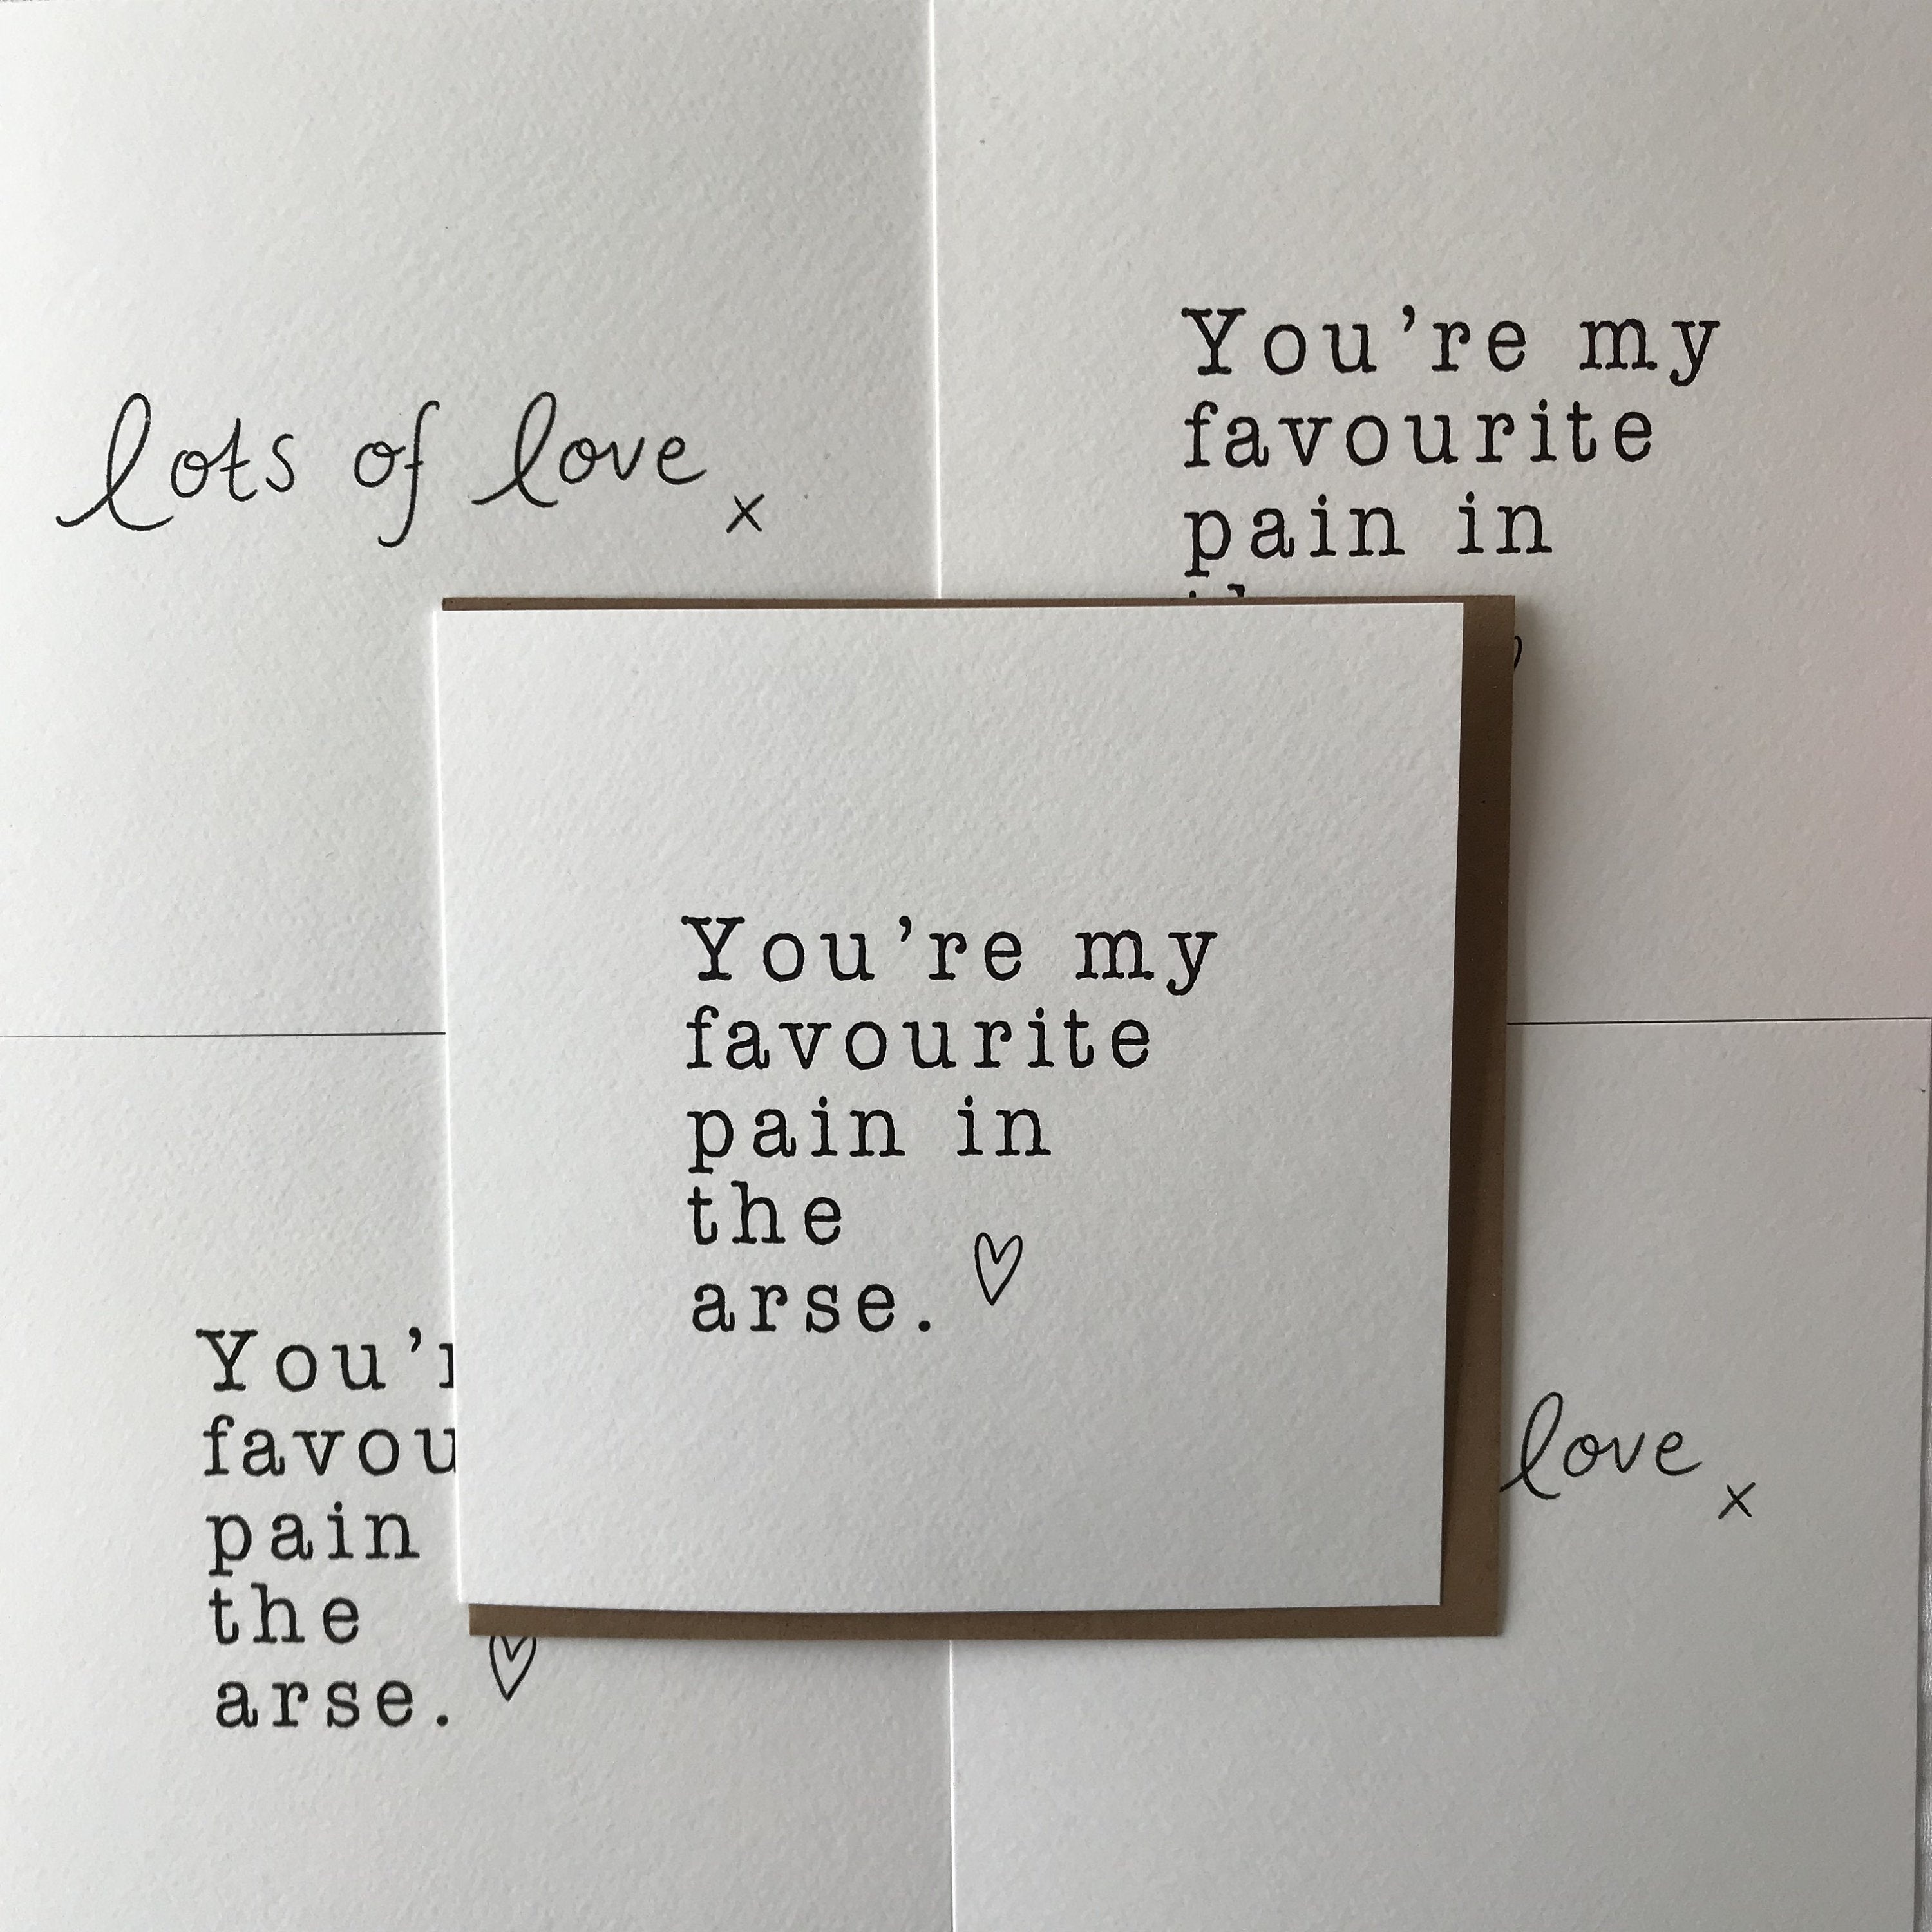 lots of love x
You're my
favourite
pain in
You're my
favourite
pain in
the
arse.
pain
the
arse.
love x